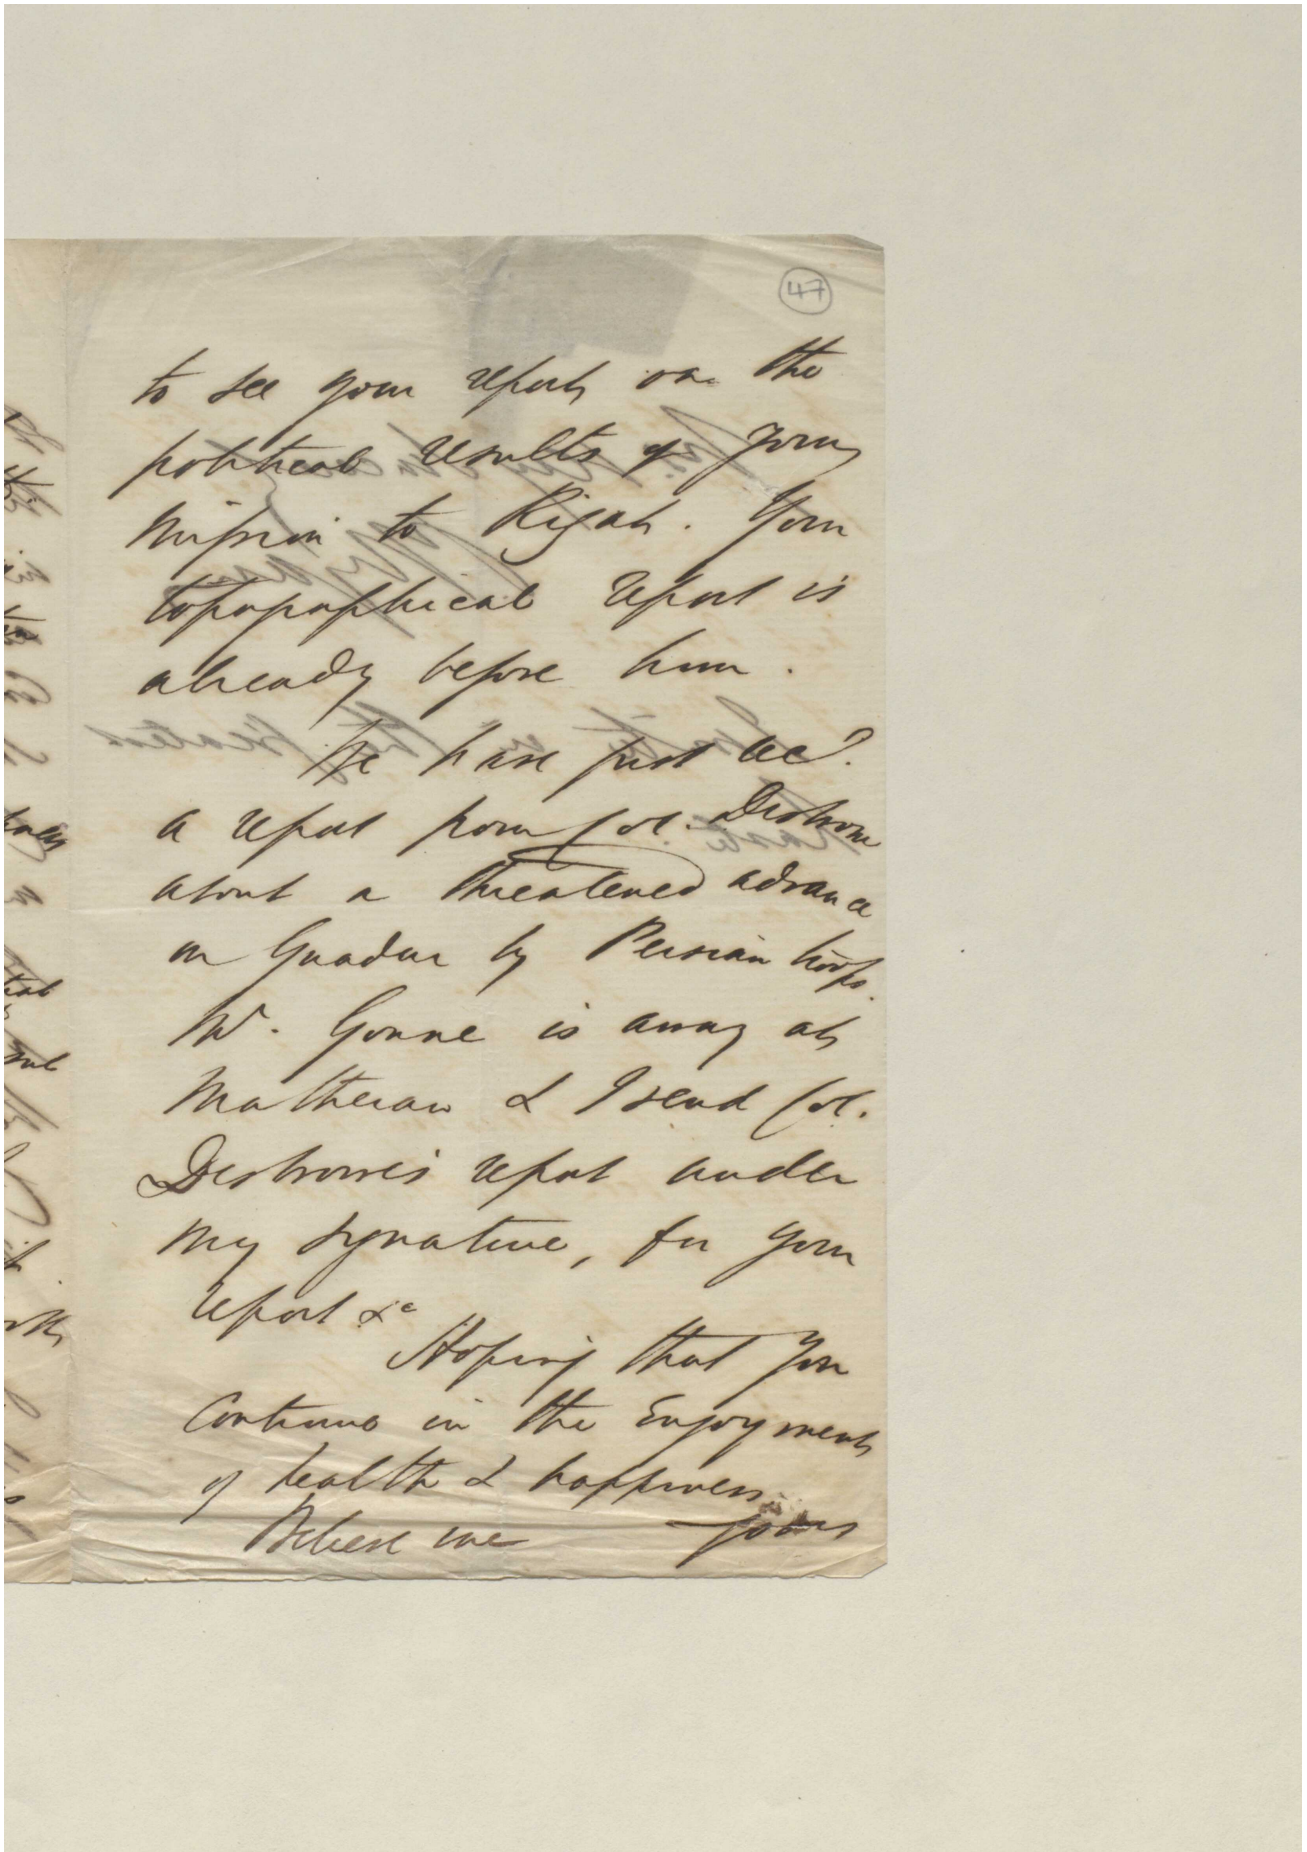 47
to see your report on the
political results of your
Mission to Riyah. Your
topographical report is
already before him.
We have just recd.
a report from Col. Disbrowe
about a threatened advance
on Guadur by Persian troops.
Mr. Gonne is away at
Matheran & I send Col.
Disbrowe's report under
my signature, for your
report &c
Hoping that you
continue in the enjoyment
of health & happiness.
Believe me yours